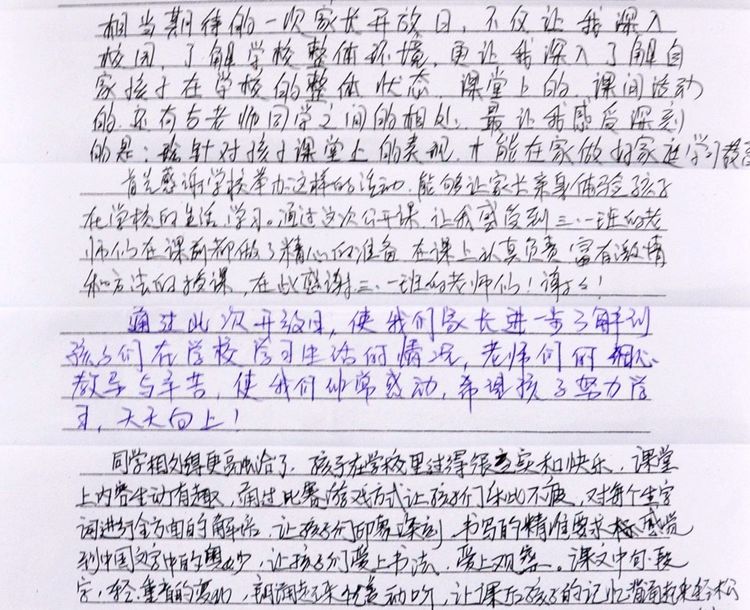 相当期待的一次家长开放日,不仅让我深入
校园,了解学校整体环境,更让我深入了解自
家孩子在学校的整体状态,课堂上的,课间活动
的,还有与老师同学之间的相处。最让我感受深刻
的是:针对孩子课堂上的表现,才能在家做好家庭学习教育
首先感谢学校举办这样的活动,能够让家长亲身体验孩子
在学校的生活、学习。通过这次公开课,让我感受到三·一班的老
师们在课前都做了精心的准备,在课上认真负责,富有激情
和方法的授课,在此感谢三·一班的老师们!谢谢!
通过此次开放日,使我们家长进一步了解到
孩子们在学校学习生活的情况,老师们的细心
教导与辛苦,使我们非常感动,希望孩子努力学
习,天天向上!
同学相处得更融洽了,孩子在学校里过得很充实和快乐,课堂
上内容生动有趣,通过比赛游戏方式让孩子们乐此不疲,对每个生字
词进行全方面的解话,让孩子们印象深刻,书写的精准要求感觉
到中国文字中的奥妙,让孩子们爱上书法,爱上观察。课文中句、段、
字,轻、重音的变动,朗诵起来优美动听,让课后孩子的记忆背诵